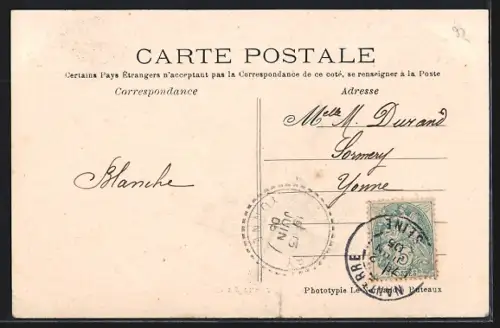 92
CARTE POSTALE
Certains Pays Étrangers n'acceptant pas la Correspondance de ce coté, se renseigner à la Poste
Correspondance
Adresse
Melle M. Durand
Sormery
Yonne
Blanche
YONNE
15
JUIN
05
NANTERRE
SEINE
05
Phototypie Le Puteaux